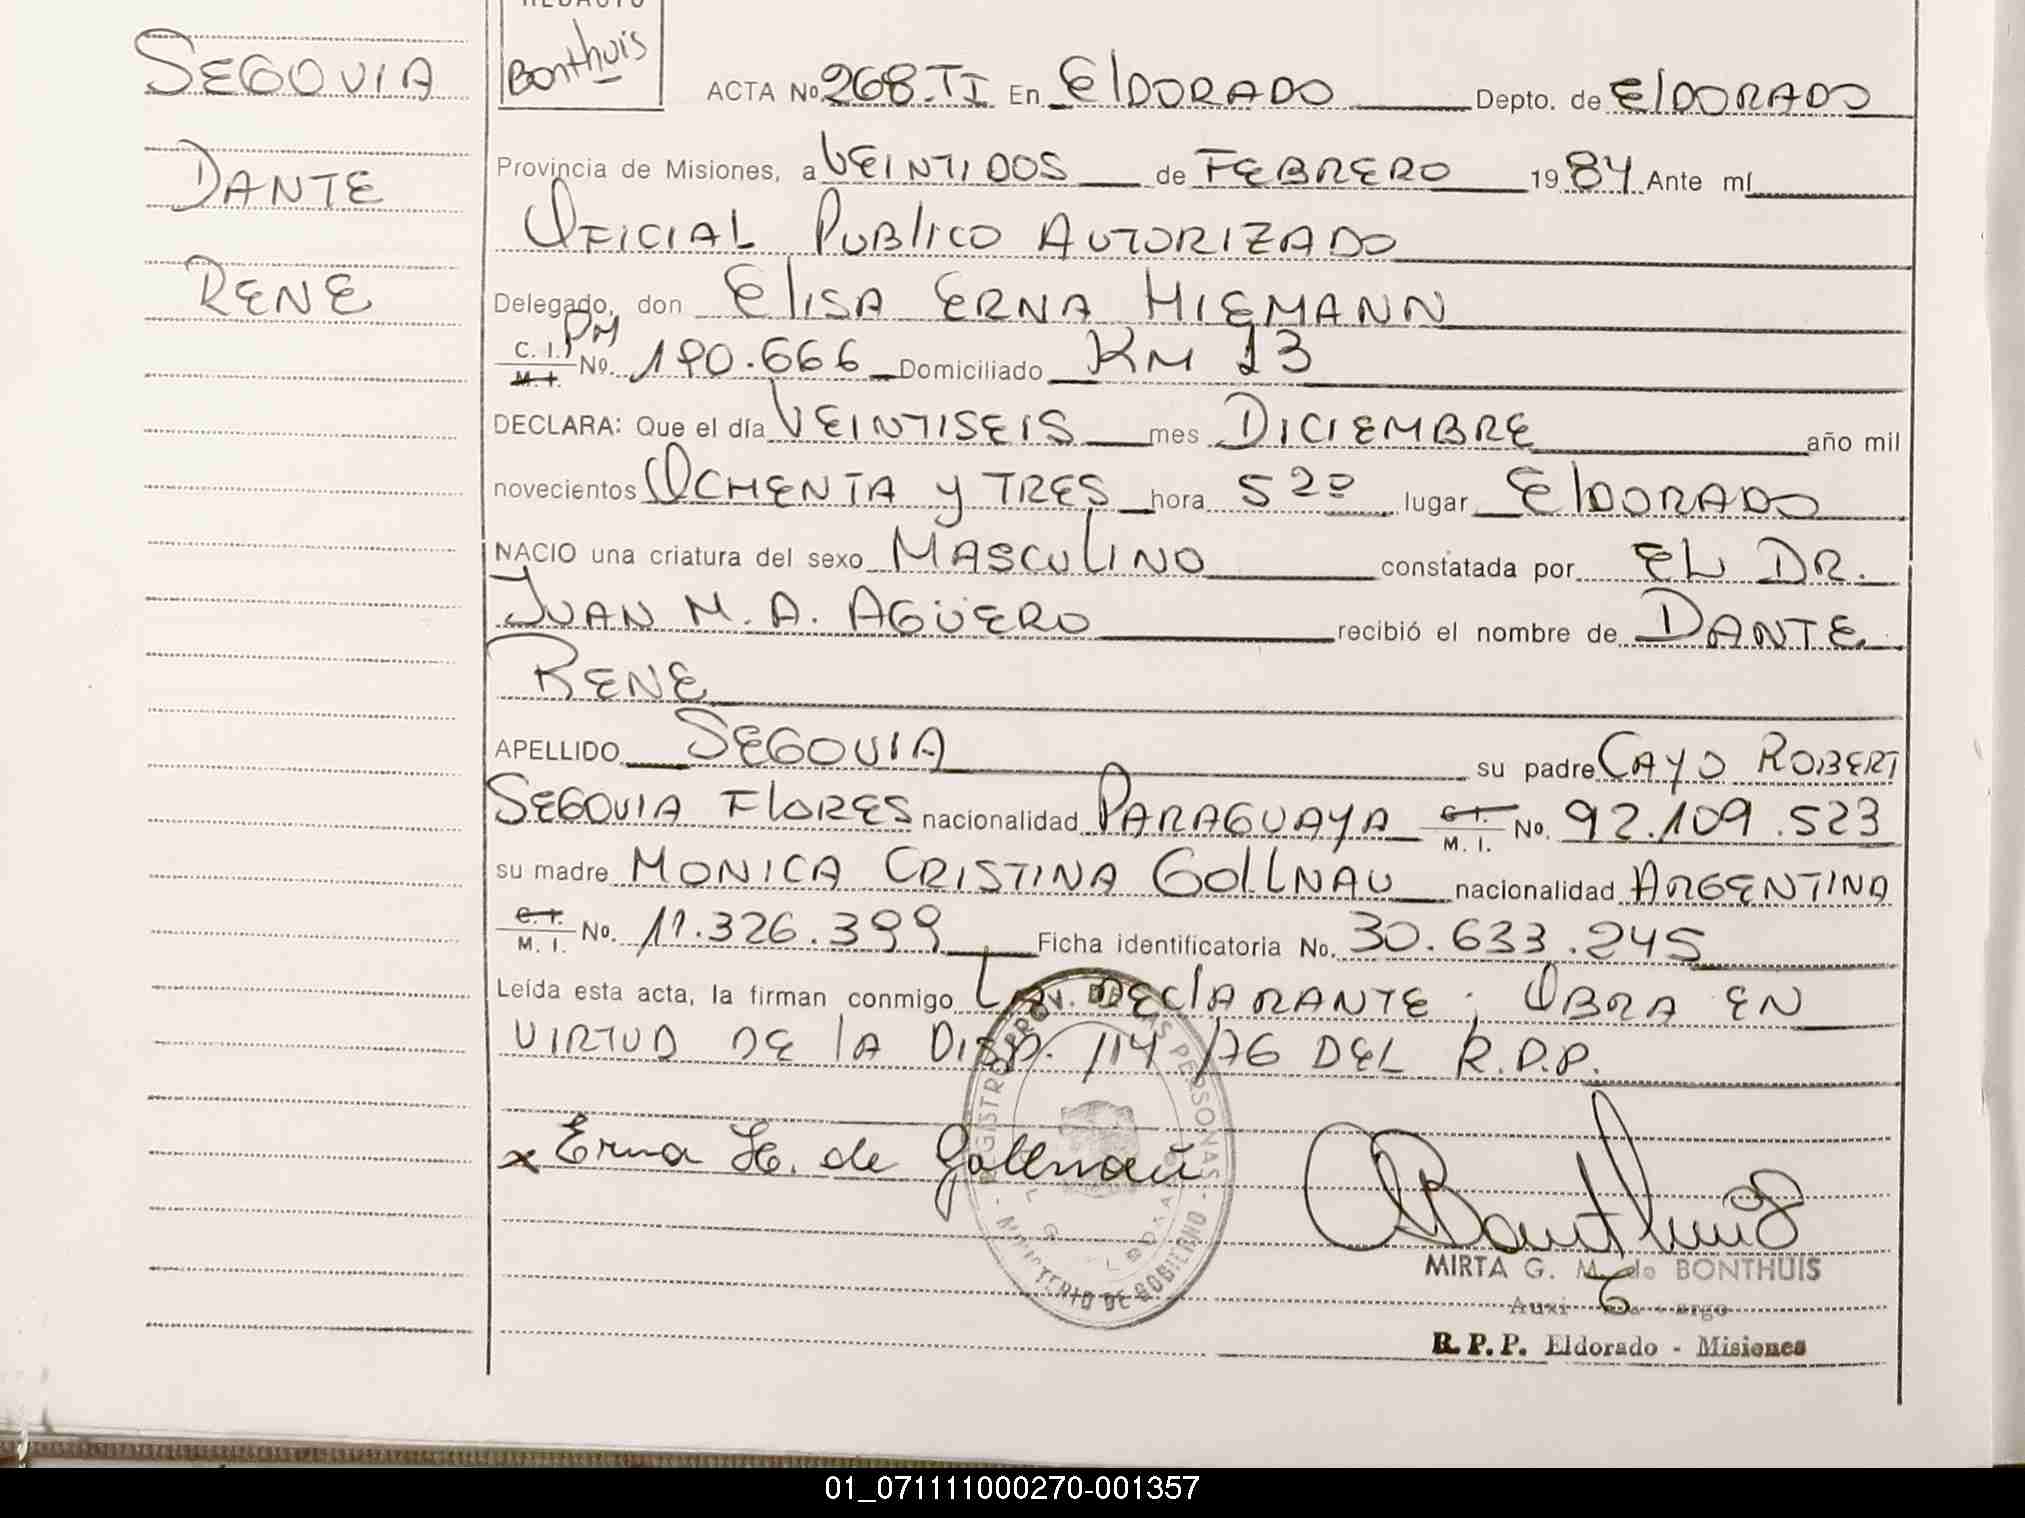 SEGOVIA
DANTE
RENE
REDACTO
Bonthuis
ACTA No. 268-TI En ElDORADO Depto. de ElDORADO
Provincia de Misiones, a VEINTIDOS de FEBRERO 1984 Ante mí
OFICIAL PUBlICO AUTORIZADO
Delegado, don ElISA ERNA HIEMANN
C. I. PM
M. I. No. 190.666 Domiciliado KM 13
DECLARA: Que el día VEINTISEIS mes DICIEMBRE año mil
novecientos OCHENTA y TRES hora 5 20 lugar ElDORADO
NACIO una criatura del sexo MASCULINO constatada por EL DR.
JUAN M. A. AGÜERO recibió el nombre de DANTE
RENE
APELLIDO SEGOVIA su padre CAYO ROBERT
SEGOVIA FlORES nacionalidad PARAGUAYA C. I. M. I. No. 92.109.523
su madre MONICA CRISTINA GOlLNAU nacionalidad ARGENTINA
C. I. M. I. No. 11.326.399 Ficha identificatoria No. 30.633.245
Leída esta acta, la firman conmigo LA DEClARANTE; OBRA EN
VIRTUD DE lA DISP. 114/76 DEL R.D.P.
REGISTRO PROV. DE LAS PERSONAS
MINISTERIO DE GOBIERNO
x Erna H. de Gollnau
Bonthuis
MIRTA G. M. de BONTHUIS
R. P. P. Eldorado - Misiones
01_071111000270-001357